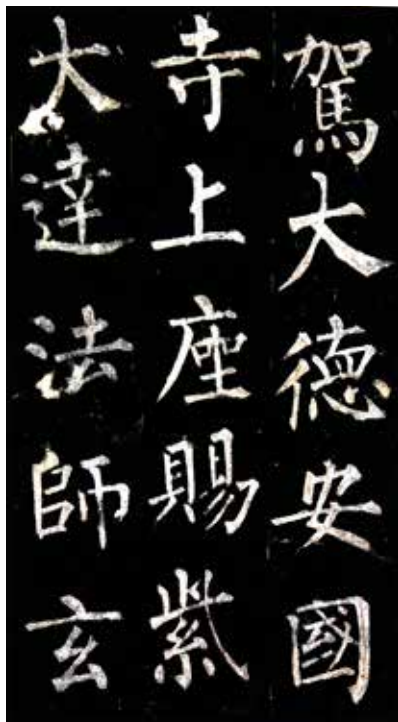 駕大德安國
寺上座賜紫
大達法師玄